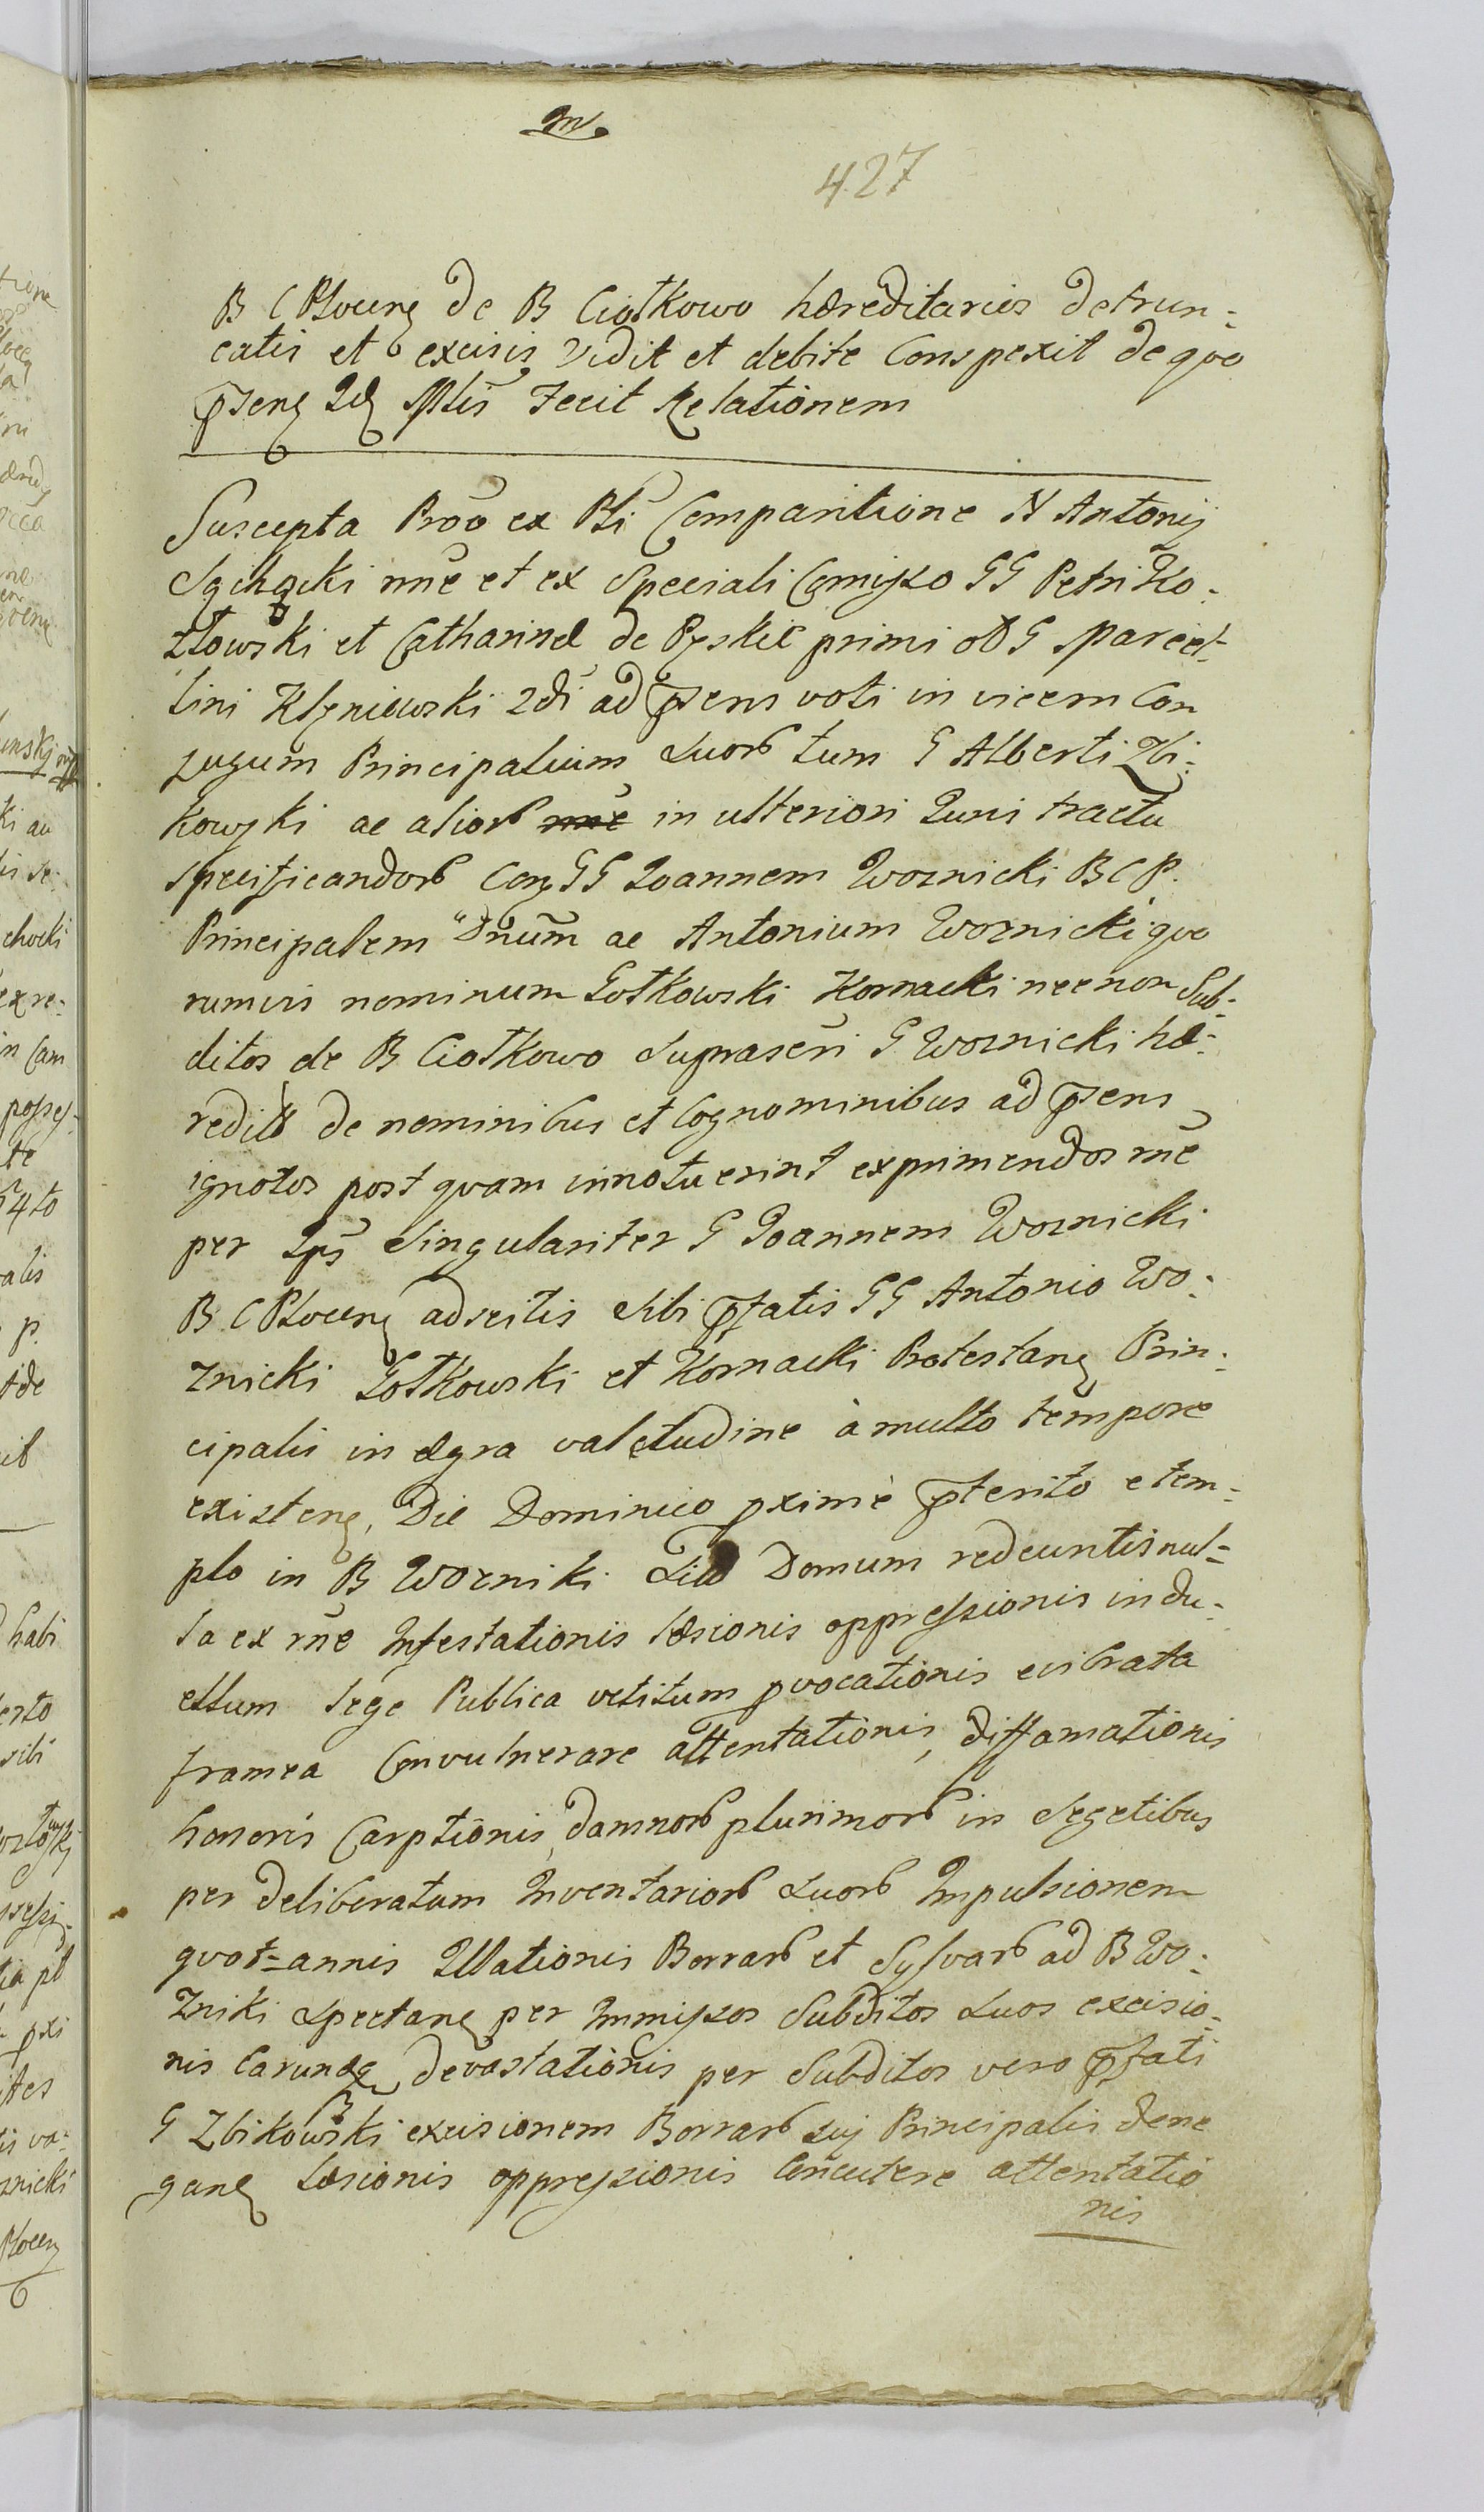 427
B C Plocen de B Ciotkowo hæreditarios detrun-
catis et excisis Vidit et debite Conspexit de quo
p̄sens Idem Mlis Fecit Relationem
Suscepta Pro͞o ex Pti Comparitione N Antonij
no͞ie et ex Speciali Com̄isso GG Petri Ko-
złowski et Catharinæ de primi olim G Marcel-
lini 2di ad p̄sens voti in vicem Con
jugum Principalium Suorum tum G Alberti Zbi-
kowski ac aliorum in ulteriori Juris tractu
specificandorum Con GG Joannem Woznicki B C P.
Principalem Dnum ac Antonium Woznicki quo
rumvis nominum Gotkowski Kornacki necnon Sub-
ditos de B Ciotkowo Suprascri G Woznicki hæ-
redit de nominibus et Cognominibus ad p̄sens
ignotos post quam innotuerint exprimendos r͞ne
per Ips Singulariter G Joannem Woznicki
B C Plocen adscitis Sibi p̄fatis GG Antonio Wo-
znicki Gotkowski et Kornacki Protestan Prin-
cipalis in ægra valetudine à multo tempore
existen, Die Dominico pximè p̄terito e tem-
plo in B Wozniki Domum redeuntis nul-
la ex r͞ne Infestationis læsionis oppressionis in du-
ellum lege Publica vetitum pvocationis evibrata
framea Convulnerare attentationis, diffamationis
honoris Carptionis, damnorum plurimorum in Segetibus
per deliberatam Inventariorum Suorum Impulsionem
quot-annis Illationis Borrarum et Sylvarum ad B Wo-
zniki Spectan per Immissos Subditos Suos excisio-
nis Earundem devastationis per Subditos vero p̄fati
G Zbikowski excisionem Borrarum sui Principalis dene
gan læsionis oppressionis Concutere attentatio
nis